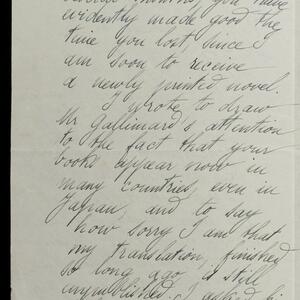 months, you have
evidently made good the
time you lost, since I
am soon to receive
a newly printed novel.
I wrote to draw
Mr Gallimard's attention
to the fact that your
books appear now in
many countries, even in
Japan, and to say
how sorry I am that
my translation, finished
so long ago, is still
unpublished. I asked